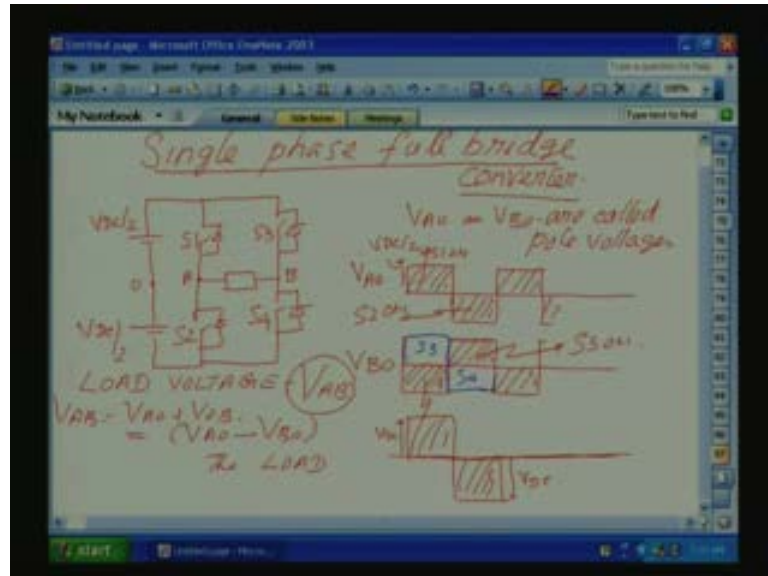 Untitled page - Microsoft Office OneNote 2003
File Edit View Insert Format Tools Window Help
Type a question for help
Back
100%
My Notebook
General
Side Notes
Meetings
Type text to find
Single phase full bridge
converter.
VAO = VBO are called
pole voltages
VDC/2
S1
S3
O
A
B
VDC/2
S2
S4
LOAD VOLTAGE - VAB
VAB = VAO + VOB.
= (VAO - VBO)
The LOAD
VDC/2
S1 ON
VAO
S2 ON
VBO
S3
S4
S3 ON.
VDC
VDC
start
Untitled page - Micro...